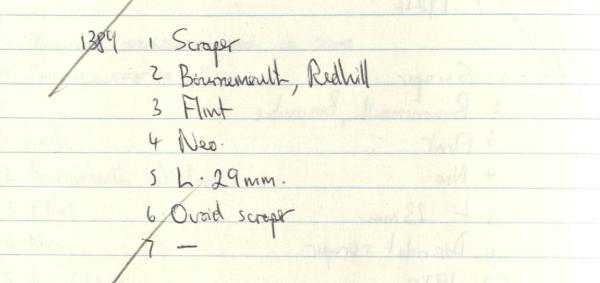 1389 1 Scraper
2 Bournemouth, Redhill
3 Flint
4 Neo.
5 L. 29mm.
6 Ovoid scraper
7 —